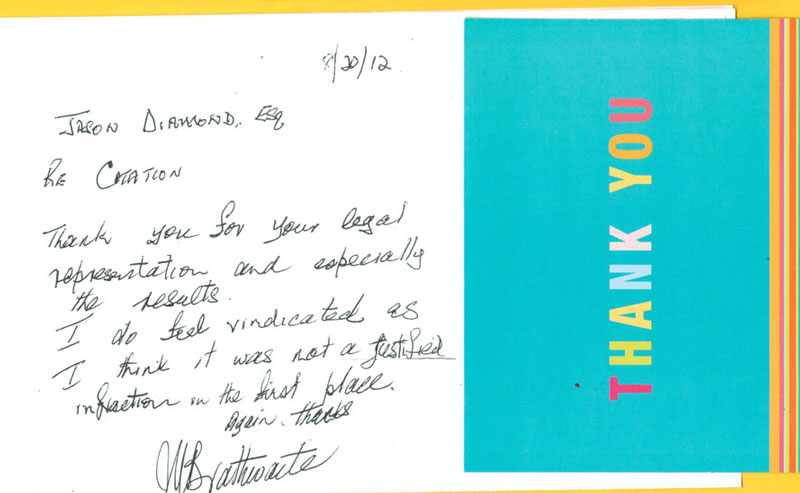 8/20/12
JASON DIAMOND, ESQ
RE CITATION
Thank you for your legal
representation and especially
the results.
I do feel vindicated as
I think it was not a justified
infraction in the first place.
Again, thanks
MBrathwaite
THANK YOU